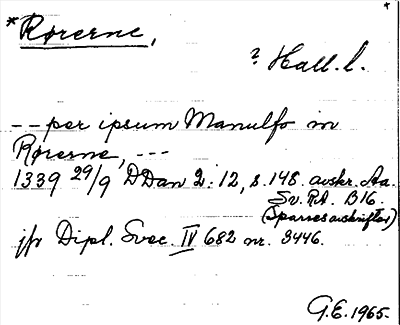 *Rørerne,
? Hall. l.
-- per ipsum Manulfo in
Rørerne, ---
1339 29/9 DDan 2:12, s. 148. avskr. Aa.
Sv. RA. B16.
(Sparres avskrifter)
jfr Dipl. Svec. IV 682 nr. 3446.
G.E. 1965.